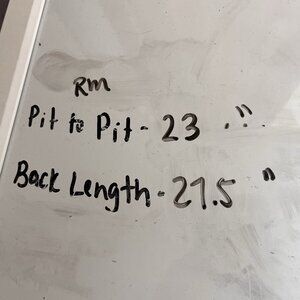 RM
Pit to Pit - 23 . "
Back Length - 27.5 "